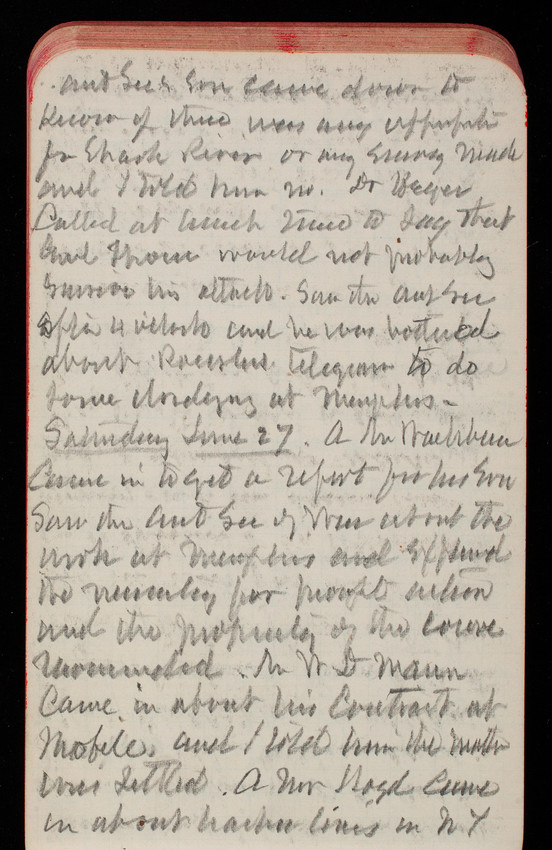 and Sec's Son came down to
know if there was any
for Shark River or any Survey made
and I told him no. Dr
Called at lunch time to say that
would not probably
Survive his attack. Saw the Act Sec
after 4 oclock and he was bothered
about Telegram to do
some dredging at Memphis -
Saturday June 27. A Mr Washburn
Came in to get a report for his Son
Saw the Act Sec of War about the
work at Memphis and Explained
the necessity for prompt action
and the propriety of the course
recommended. Mr W D Mann
Came in about his Contract at
Mobile, and I told him the matter
was settled. A Mr Lloyd Came
in about harbor lines in N Y